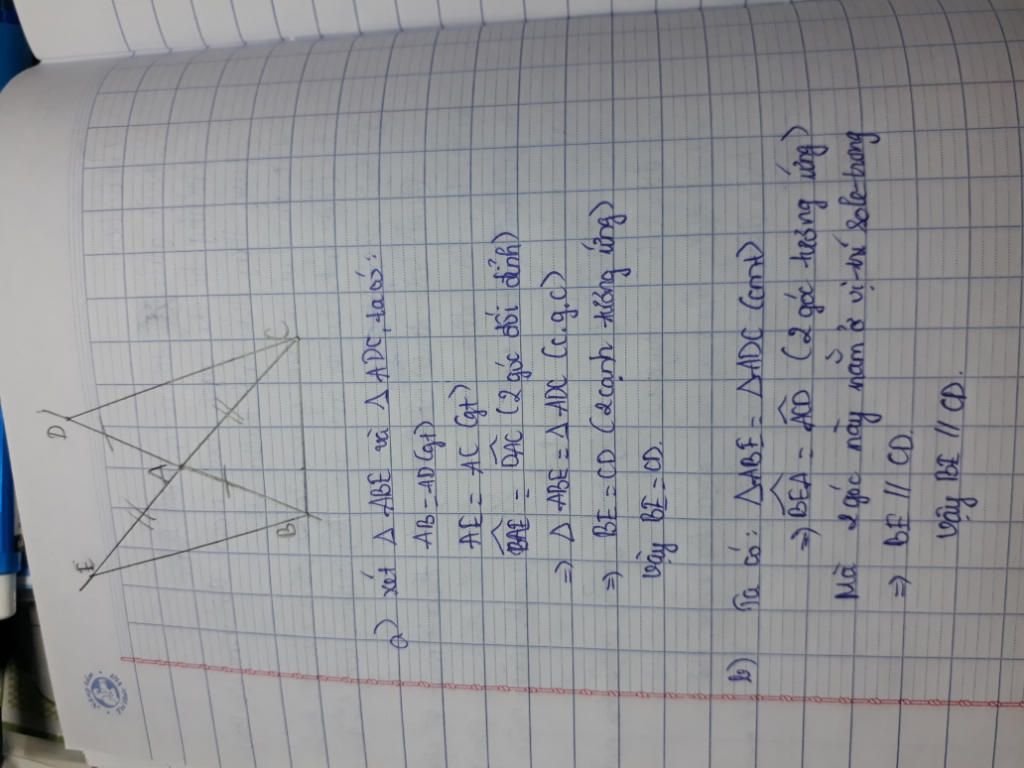 D
E
A
B
C
a) xét Δ ABE và Δ ADC, ta có:
AB = AD (gt)
AE = AC (gt)
BAE = DAC (2 góc đối đỉnh)
=> Δ ABE = Δ ADC (c.g.c)
=> BE = CD (2 cạnh tương ứng)
Vậy BE = CD.
b) Ta có: ΔABE = ΔADC (cmt)
=> BEA = ACD (2 góc tương ứng)
Mà 2 góc này nằm ở vị trí sole trong
=> BE // CD.
Vậy BE // CD.